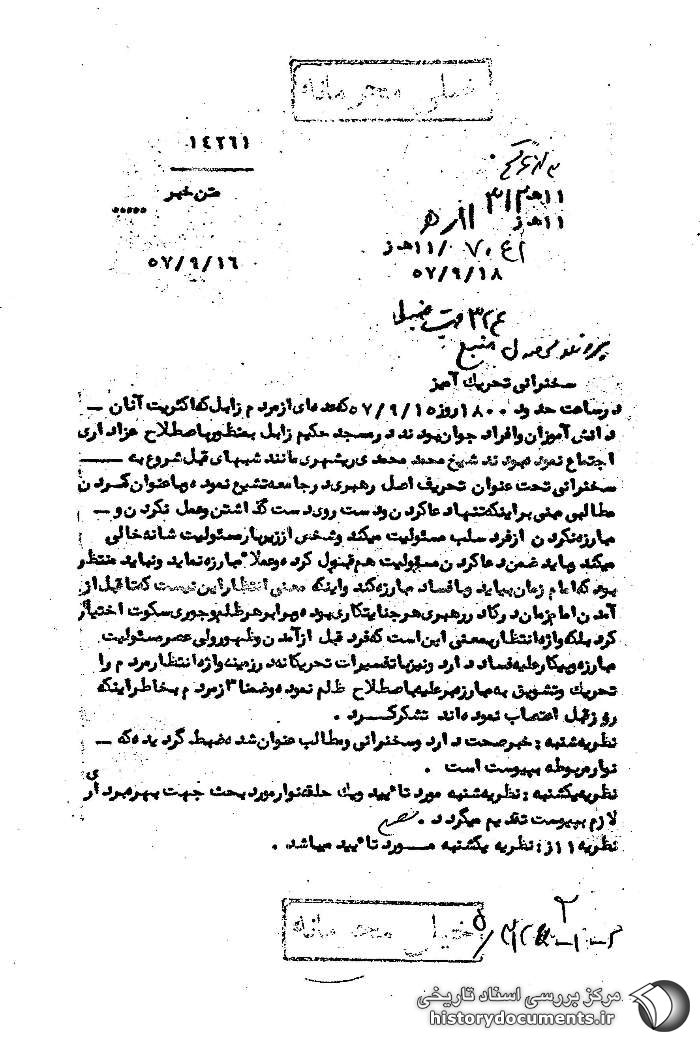 خیلی محرمانه
۱٤۲٦۱
متن خبر
۱۱هـ ۳۱۲
۱۱هـ ز
۱۱هـ ز
۵۷/۹/۱٦
۵۷/۹/۱۸
منبع
سخنرانی تحریک آمیز
در ساعت حدود ۱۸۰۰ روز ۵۷/۹/۱۵ که عده ای از مردم زابل که اکثریت آنان ــ
دانش آموزان و افراد جوان بودند در مسجد حکیم زابل بمنظور باصطلاح عزاداری
اجتماع نموده بودند شیخ محمد محمدی ریشهری مانند شبهای قبل شروع به ــــ
سخنرانی تحت عنوان تحریف اصل رهبری در جامعه تشیع نموده و با عنوان کردن
مطالبی مبنی بر اینکه تنها دعا کردن و دست روی دست گذاشتن و عمل نکردن و ــ
مبارزه نکردن از فرد سلب مسئولیت میکند و شخص از زیر بار مسئولیت شانه خالی
میکند و باید ضمن دعا کردن مسؤلیت هم قبول کرده و عملا" مبارزه نماید و نباید منتظر
بود که امام زمان بیاید و با فساد مبارزه کند و اینکه معنی انتظار این نیست که تا قبل از
آمدن امام زمان در کادر رهبری هر جنایتکاری بوده و برابر هر ظلم و جوری سکوت اختیار
کرد بلکه واژه انتظار بمعنی این است که فرد قبل از آمدن و ظهور ولی عصر مسئولیت
مبارزه و پیکار علیه فساد دارد و نیز با تفسیرات تحریکانه در زمینه واژه انتظار مردم را
تحریک و تشویق به مبارزه بر علیه باصطلاح ظلم نموده و ضمنا" از مردم بخاطر اینکه
روز قبل اعتصاب نموده اند تشکر کرد .
نظریه شنبه : خبر صحت دارد و سخنرانی و مطالب عنوان شده ضبط گردیده که ــ
نوار مربوطه بپیوست است .
نظریه یکشنبه : نظریه شنبه مورد تائید و یک حلقه نوار مورد بحث جهت بهره برداری
لازم بپیوست تقدیم میگردد .
نظریه ۱۱ ز : نظریه یکشنبه مورد تائید میباشد .
خیلی محرمانه
مرکز بررسی اسناد تاریخی
historydocuments.ir